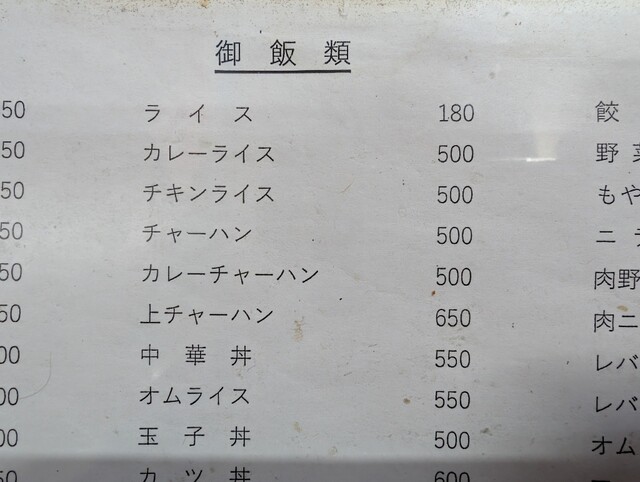 御飯類
50 ライス 180 餃
50 カレーライス 500 野菜
50 チキンライス 500 もや
50 チャーハン 500 ニラ
50 カレーチャーハン 500 肉野
50 上チャーハン 650 肉ニ
00 中華丼 550 レバ
00 オムライス 550 レバ
00 玉子丼 500 オム
50 カツ丼 600